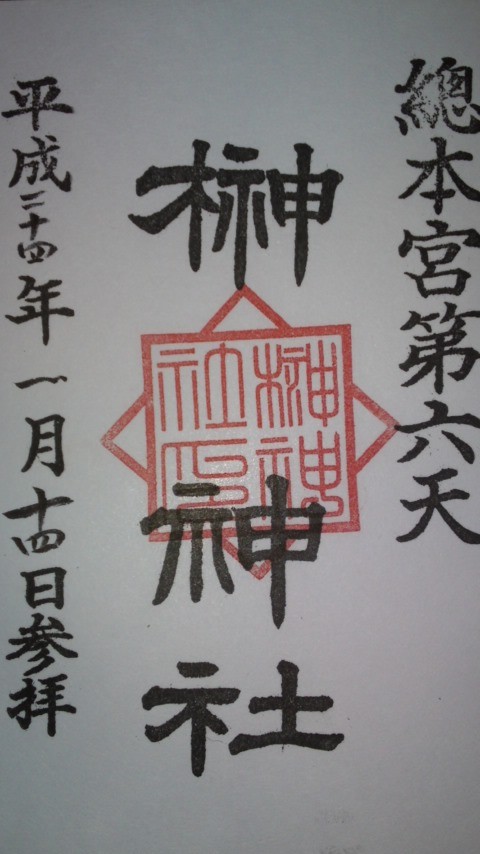 總本宮第六天
榊神社
榊神社印
平成二十四年一月十四日参拝